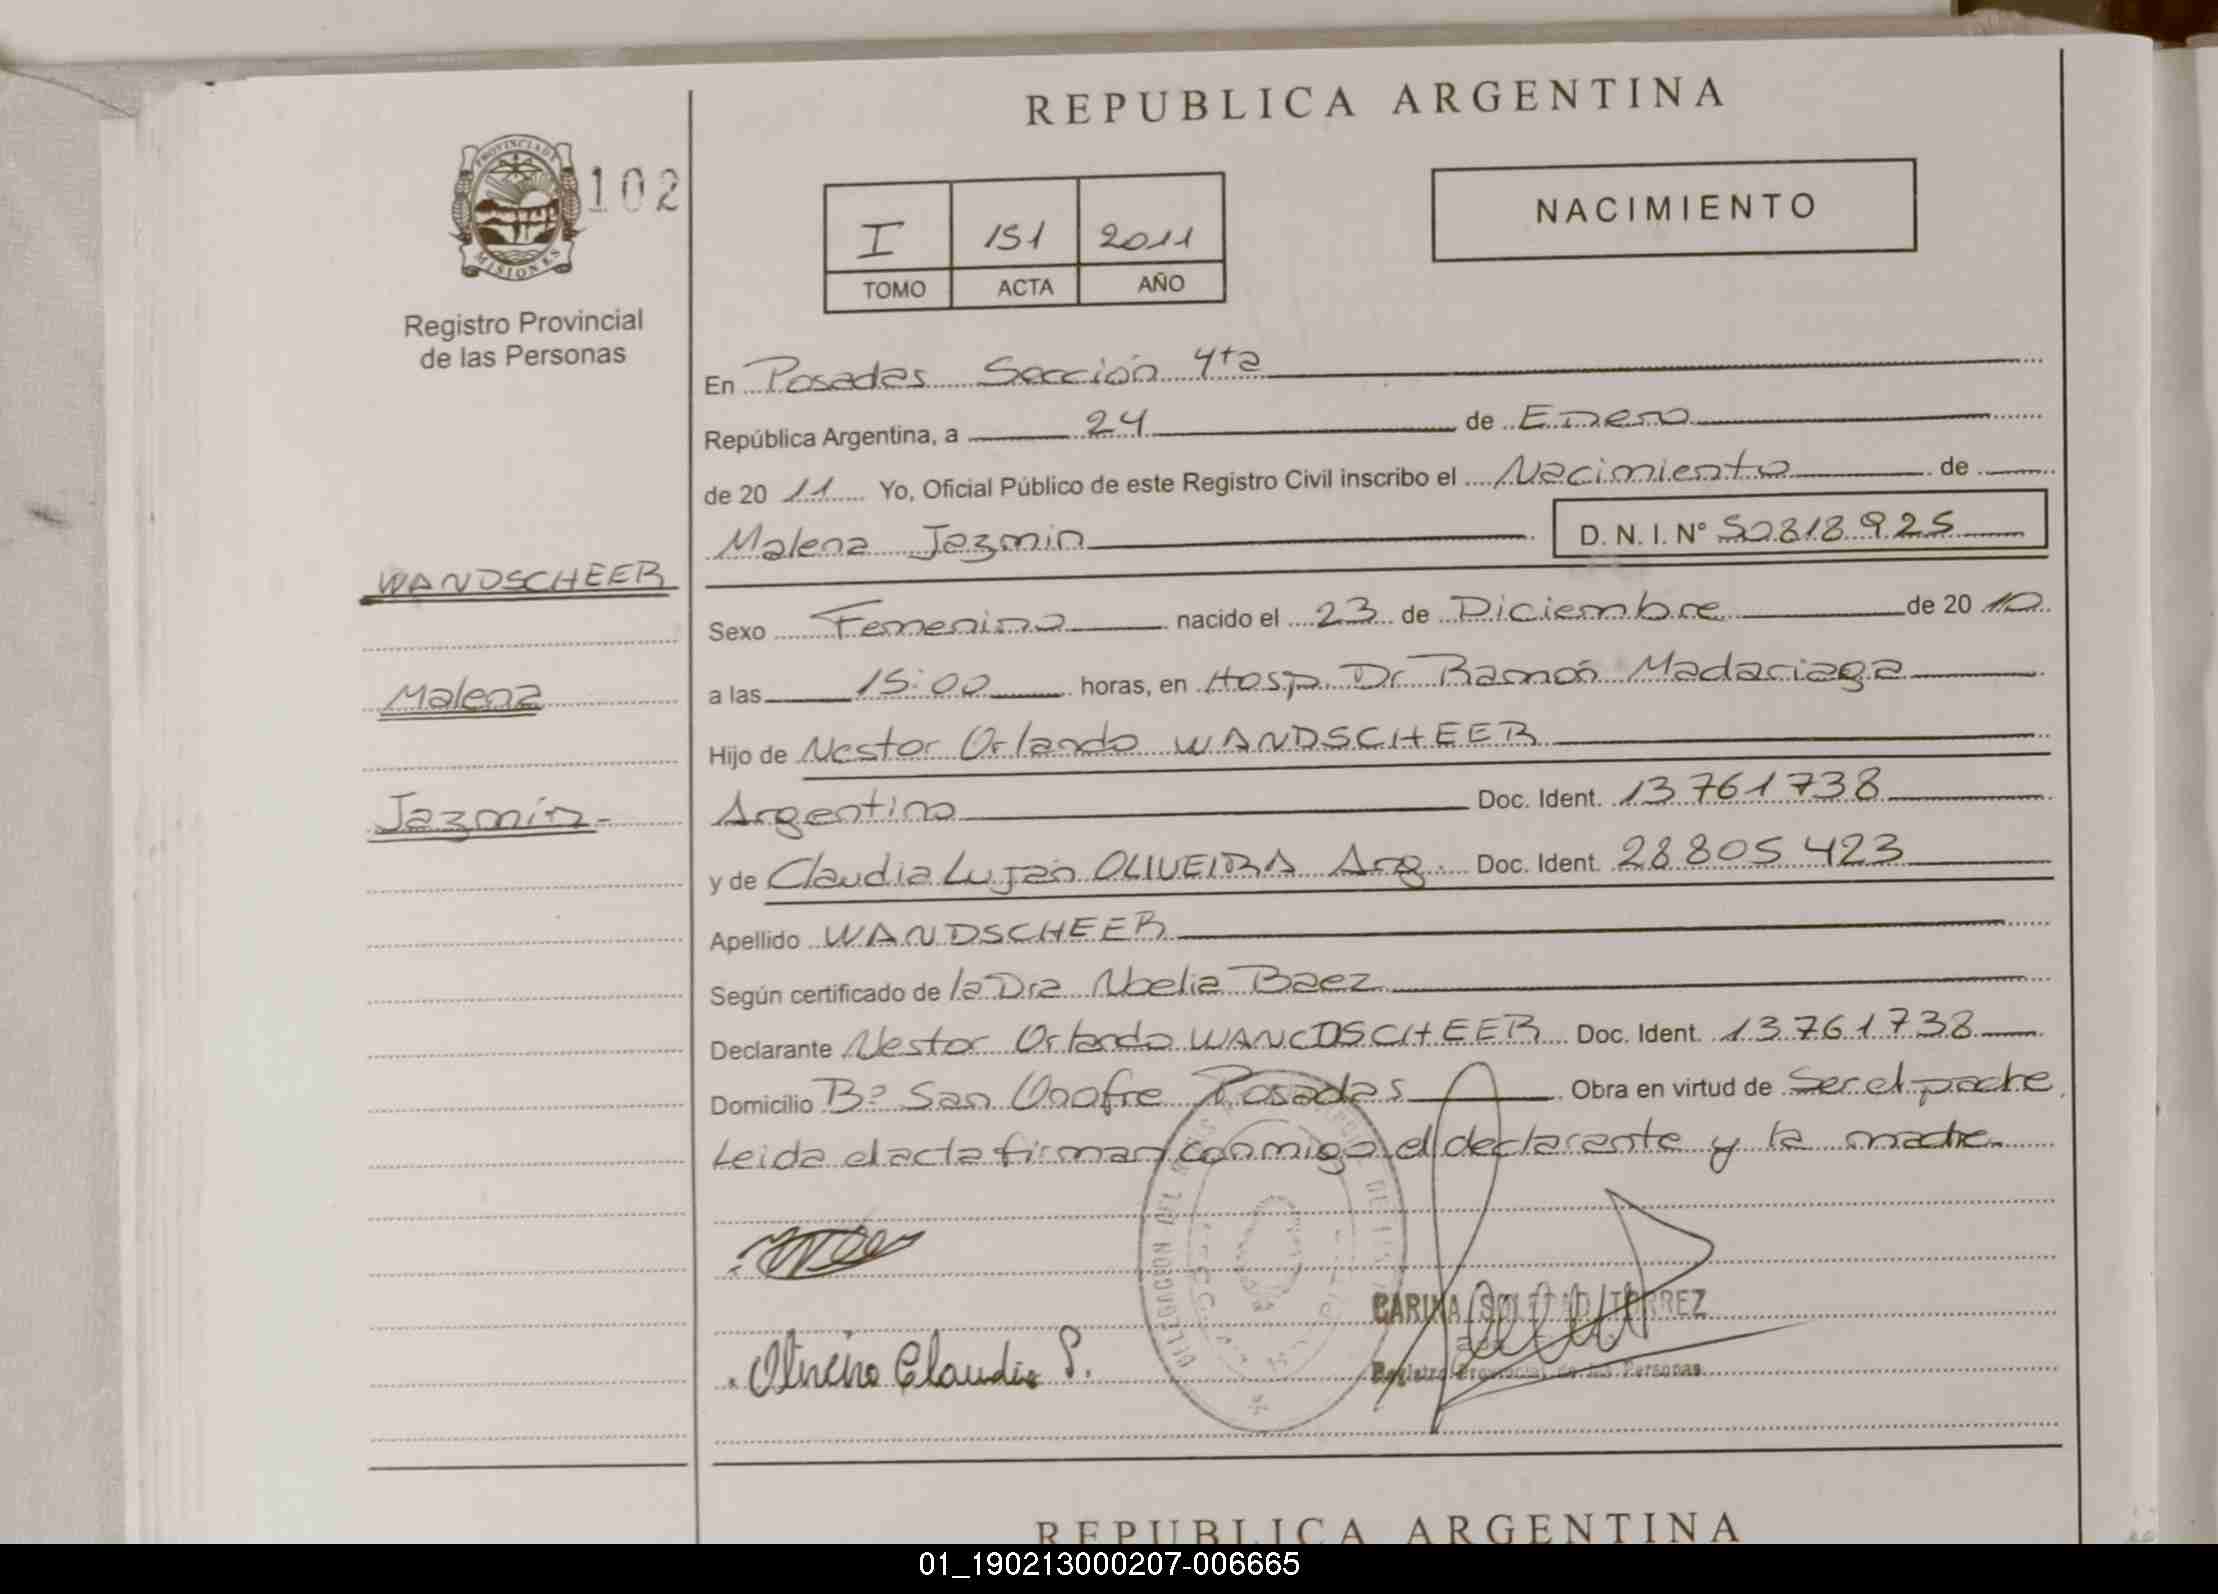 REPUBLICA ARGENTINA
PROVINCIA DE MISIONES
102
Registro Provincial
de las Personas
I 151 2011
TOMO ACTA AÑO
NACIMIENTO
En Posadas Sección 4ta
República Argentina, a 24 de Enero
de 2011 Yo, Oficial Público de este Registro Civil inscribo el Nacimiento de
Malena Jazmin D. N. I. N° 50818925
WANDSCHEER
Malena
Jazmín-
Sexo Femenino nacido el 23 de Diciembre de 2010
a las 15:00 horas, en Hosp. Dr Ramón Madaciaga
Hijo de Nestor Orlando WANDSCHEER
Argentino Doc. Ident. 13761738
y de Claudia Luján OLIVEIRA Arg. Doc. Ident. 28805423
Apellido WANDSCHEER
Según certificado de la Dra Noelia Baez
Declarante Nestor Orlando WANCDSCHEER Doc. Ident. 13761738
Domicilio B° San Onofre Posadas Obra en virtud de Ser el padre
Leida el acta firman conmigo el declarante y la madre.
CARINA SOLEDAD TORREZ
Registro Provincial de las Personas
Claudia
REPUBLICA ARGENTINA
01_190213000207-006665